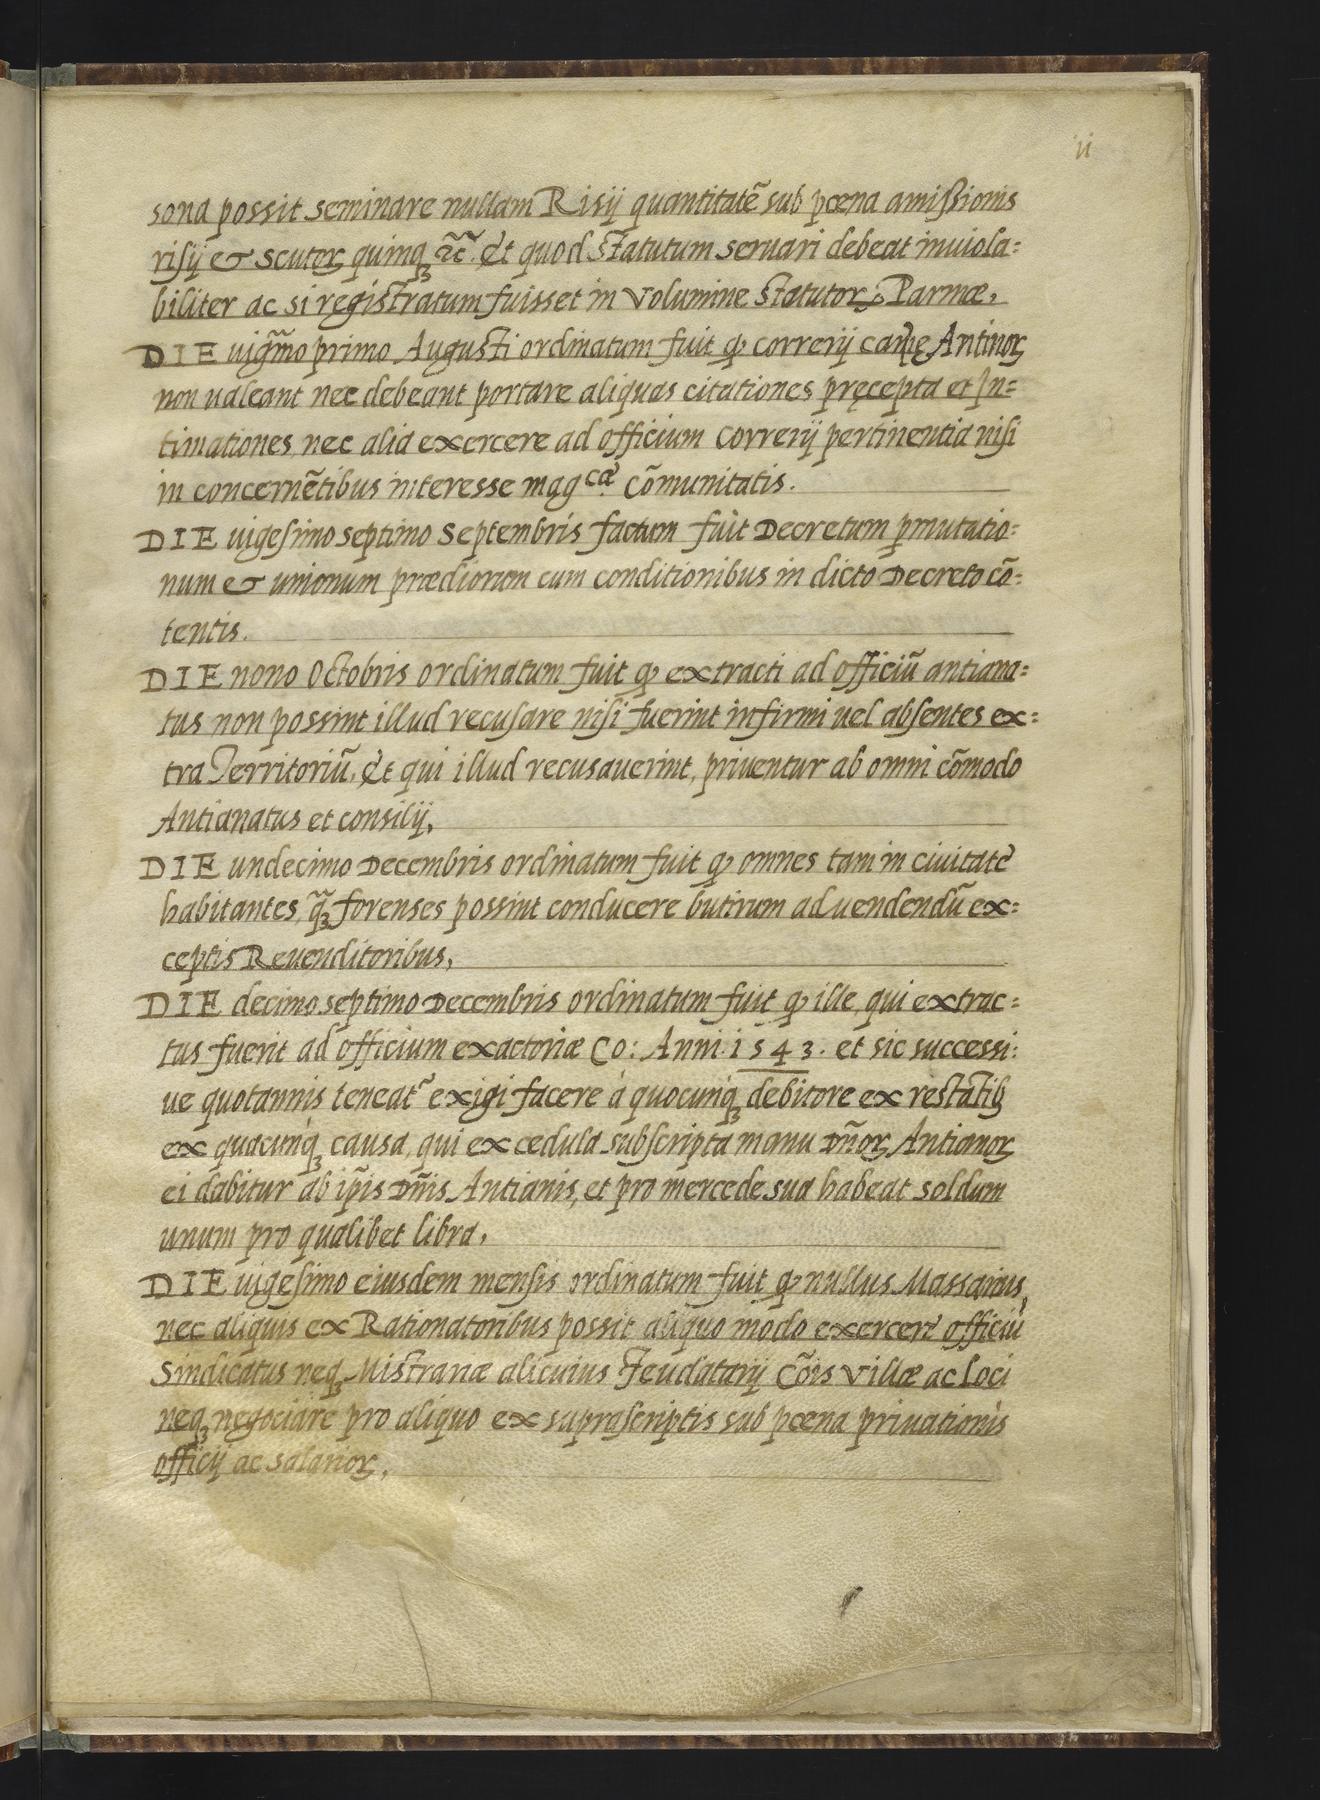 ii
sona possit seminare nullam Risij quantitatē sub pœna amissionis
risij & scutoꝝ quinqꝫ ꝛc̃. Et quod Statutum seruari debeat inuiola=
biliter ac si registratum fuisset in Volumine Statutoꝝ Parmæ,
DIE uigm̃o primo Augusti ordinatum fuit ꝙ correrij Antinoꝝ
non ualeant nec debeant portare aliquas citationes pręcepta et In=
timationes nec alia exercere ad officium correrij pertinentia nisi
in concernētibus interesse magcæ. cōmunitatis.
DIE uigesimo septimo Septembris factum fuit Decretum ꝑmutatio=
num & unionum prædiorum cum conditionibus in dicto Decreto cō=
tentis.
DIE nono Octobris ordinatum fuit ꝙ extracti ad officiū antiana=
tus non possint illud recusare nisi fuerint infirmi uel absentes ex=
tra Territoriū, Et qui illud recusauerint, priuentur ab omni cōmodo
Antianatus et consilij,
DIE undecimo Decembris ordinatum fuit ꝙ omnes tam in ciuitate
habitantes, q̃ꝫ forenses possint conducere butirum ad uendendū ex=
ceptis Reuenditoribus,
DIE decimo septimo Decembris ordinatum fuit ꝙ ille, qui extrac=
tus fuerit ad officium exactoriæ Co: Anni 1543. et sic successi:
ue quotannis teneat᷑ exigi facere à quocunqꝫ debitore ex restatibꝫ
ex quacunqꝫ causa, qui ex cedula subscripta manu Dñoꝝ Antianoꝝ
ei dabitur ab ip̃is Dñis Antianis, et pro mercede sua habeat soldum
unum pro qualibet libra,
DIE uigesimo eiusdem mensis ordinatum fuit ꝙ nullus Massarius,
nec aliquis ex Rationatoribus possit aliquo modo exercere officiū
Sindicatus neqꝫ Mistranæ alicuius Feudatarij Cōis Villæ ac Loci
neqꝫ negociare pro aliquo ex suprascriptis sub pœna priuationis
officij ac salarioꝝ,